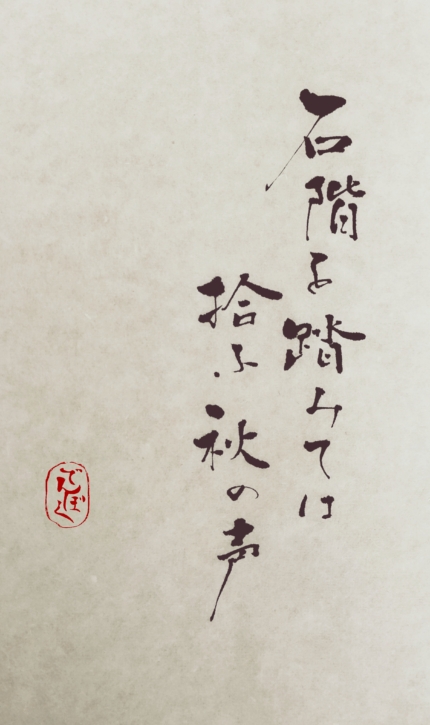 石階を踏みては
拾ふ秋の声